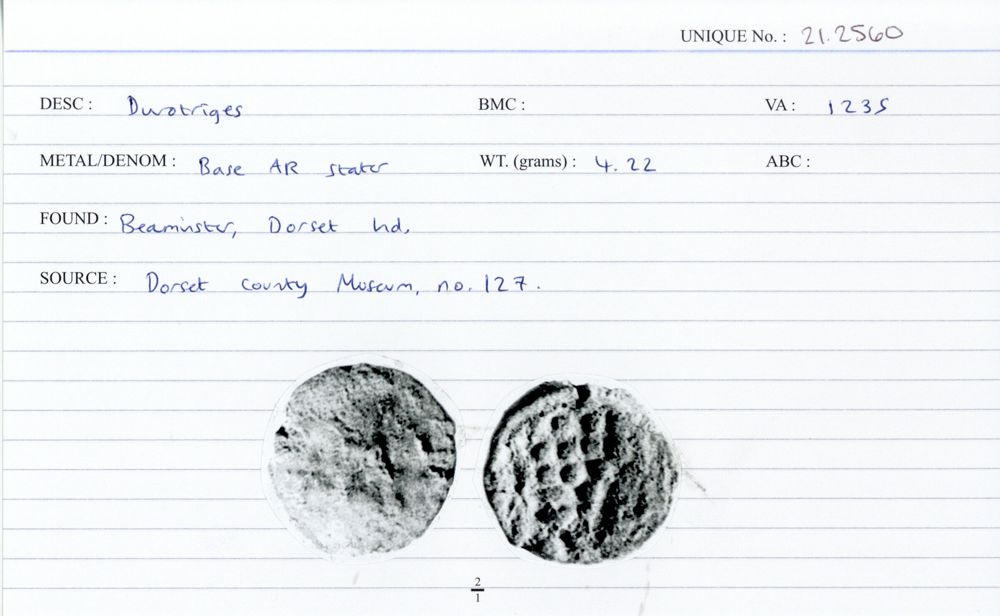 UNIQUE No. : 21.2560
DESC : Durotriges BMC : VA : 1235
METAL/DENOM : Base AR stater WT. (grams) : 4.22 ABC :
FOUND : Beaminster, Dorset hd,
SOURCE : Dorset County Museum, no. 127.
2
1